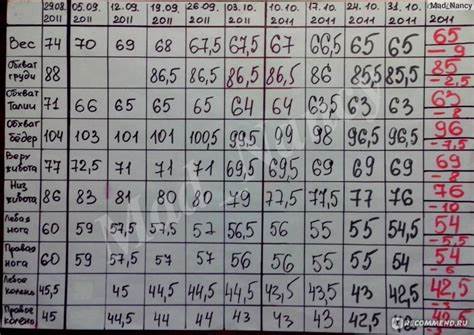 29.08. 2011 05.09. 2011 12.09. 2011 19.09. 2011 26.09. 2011 03.10. 2011 10.10. 2011 17.10. 2011 24.10. 2011 31.10. 2011 2011
Mad_Nancy
Вес 74 70 69 68 67,5 67,5 67 66,5 65 65 65 -9
Обхват груди 88 86,5 86,5 86,5 86,5 86 85,5 85,5 85 -2,5
Обхват Талии 71 66 65 65 65 64 64 63,5 63 63 63 -8
Обхват бёдер 104 103 101 101 100,5 99,5 99 98 96,5 96,5 96 -7,5
Верх живота 77 72,5 71 71 71 69,5 69,5 69 69 69 69 -8
Низ живота 86 83 81 80 80 79 77,5 77,5 77 76 76 -10
Левая нога 60 59 57,5 57,5 57 56,5 56 55 55 54,5 54,5 -5,5
Правая нога 60 59 57,5 57 57 56 56 55 55 54 54 -6
Левое колено 45,5 45 45 44,5 44,5 43,5 43,5 43 43 42,5
Правое колено 45 45 44,5 44 44 43 43 43
Mad_Nancy
RECOMMEND.RU